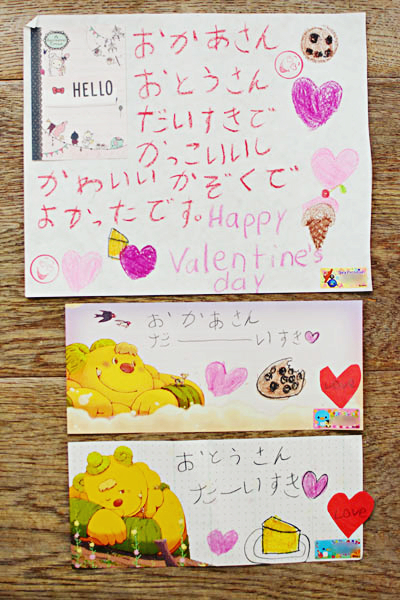 HELLO,
おかあさん
おとうさん
だいすきで
かっこいいし
かわいいかぞくで
よかったです。Happy
Valentine's
day
おかあさん
だーーいすき
LOVE
おとうさん
だーいすき
LOVE